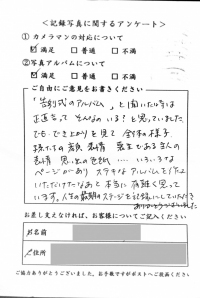 ＜記録写真に関するアンケート＞
① カメラマンの対応について
☑ 満足　□ 普通　□ 不満
② 写真アルバムについて
☑ 満足　□ 普通　□ 不満
ご自由にご意見をお書きください
「告別式のアルバム」と聞いた時は
正直言ってそんなのいる？と思っていました
でも、でき上がりを見て全体の様子
孫たちの表情
表情 思い出の色紙…… いろいろな
ページがあり ステキなアルバムを作って
いただけたなあと本当に有難く思って
います。人生の最期のステージを記録していただき
ありがとうございました
お差し支えなければ、お客様についてご記入ください
お名前
ご住所
ご協力ありがとうございました。お手数ですがポストへご投函ください